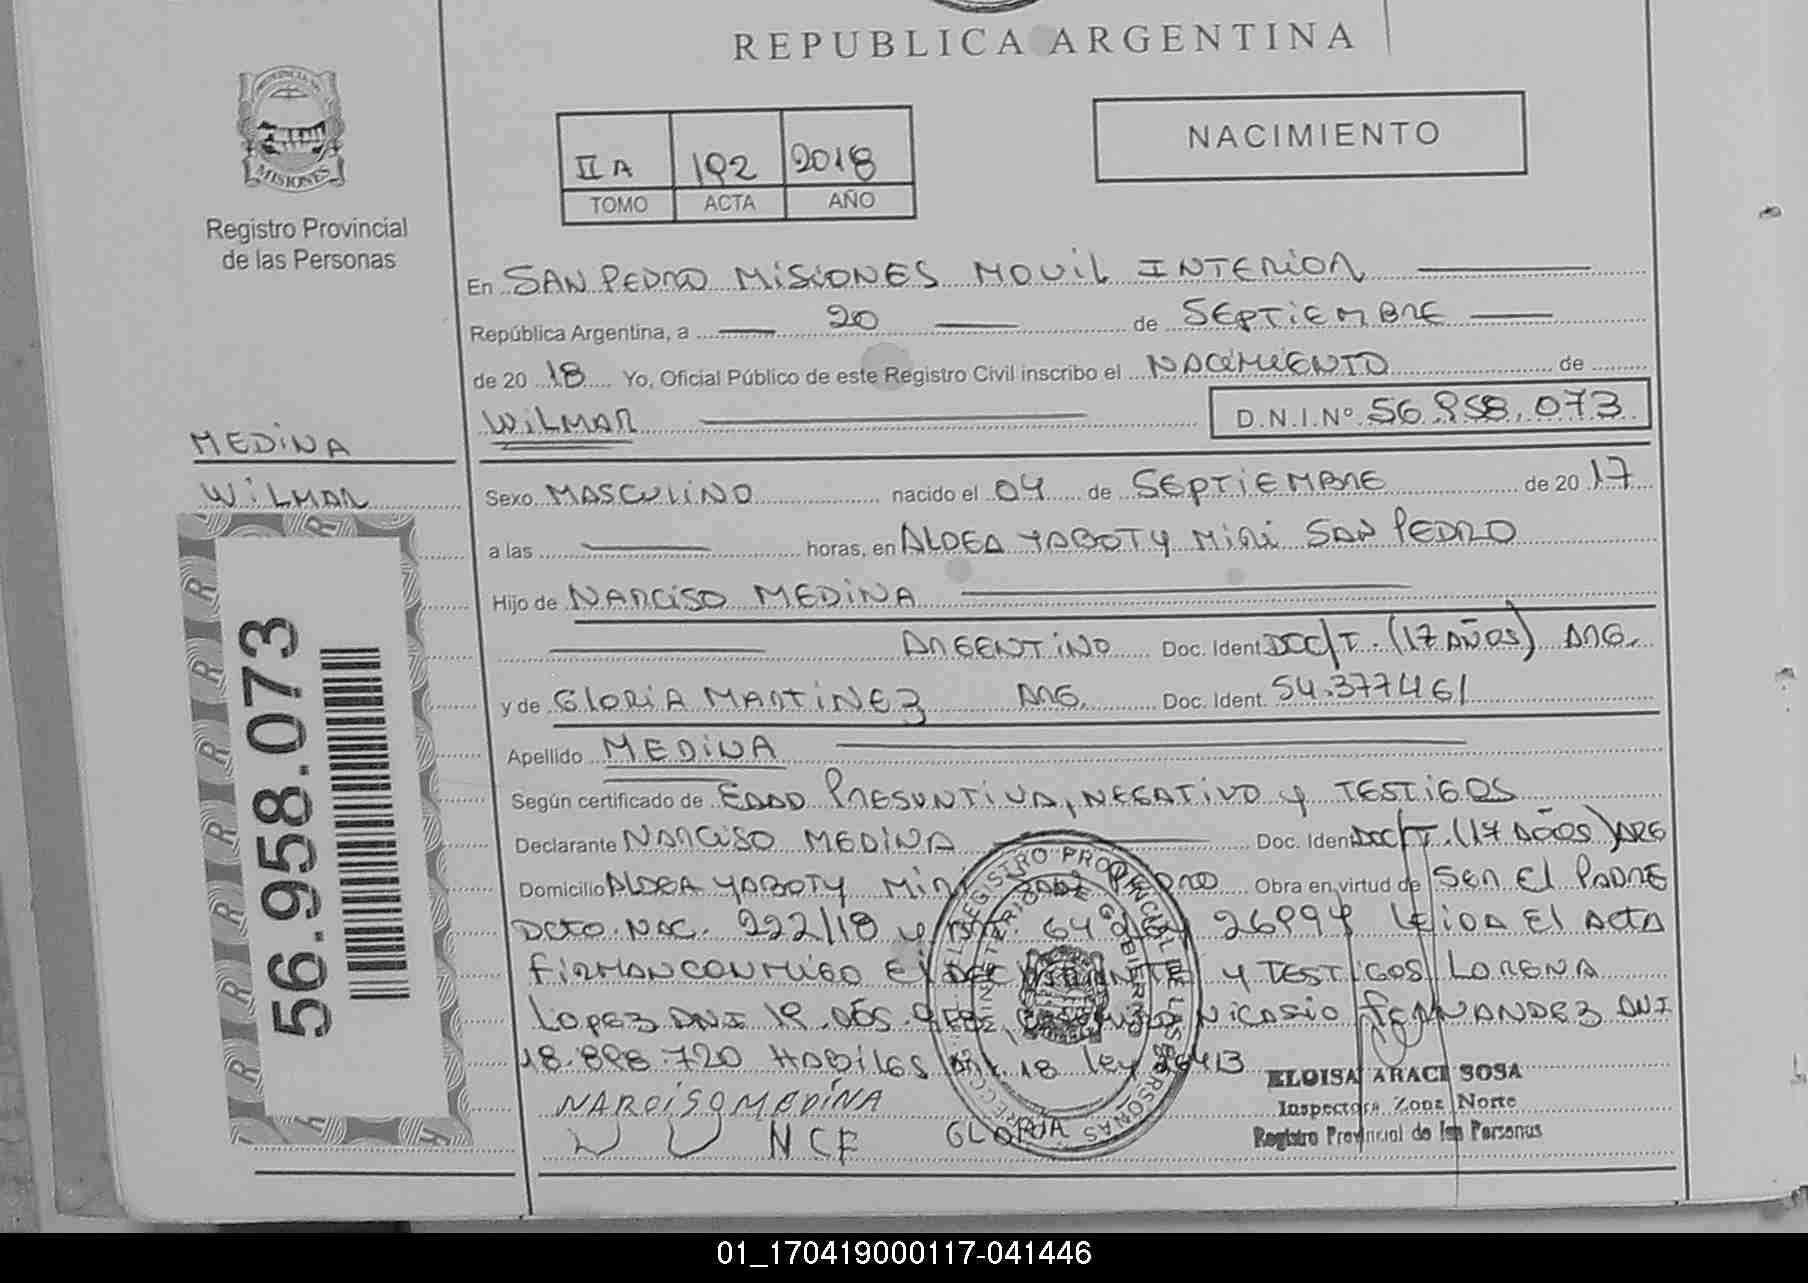 REPUBLICA ARGENTINA
MISIONES
Registro Provincial
de las Personas
II A 192 2018
TOMO ACTA AÑO
NACIMIENTO
En SAN PEDRO MISIONES MOVIL INTERIOR
República Argentina, a 20 de SEPTIEMBRE
de 2018 Yo, Oficial Público de este Registro Civil inscribo el NACIMIENTO de
WILMAR D.N.I.Nº 56.958.073
MEDINA
WILMAR
56.958.073
Sexo MASCULINO nacido el 04 de SEPTIEMBRE de 2017
a las horas, en ALDEA YABOTY MIRI SAN PEDRO
Hijo de NARCISO MEDINA
ARGENTINO Doc. Ident. DOC/T. (17 AÑOS) ARG.
y de GLORIA MARTINEZ ARG. Doc. Ident. 54.377461
Apellido MEDINA
Según certificado de EDAD PRESUNTIVA, NEGATIVO y TESTIGOS
Declarante NARCISO MEDINA Doc. Ident. DOC/T. (17 AÑOS) ARG
Domicilio ALDEA YABOTY MIRI SAN PEDRO Obra en virtud de SER El PADRE
DCTO. NAC. 222/18 y 64 LEY 26994 LEIDA El ACTA
FIRMAN CONMIGO El DECLARANTE y TESTIGOS LORENA
LOPEZ DNI NICASIO FERNANDEZ DNI
18.898.720 HABILES Art. 18 Ley 26413
NARCISO MEDINA
NCF GLORIA
ELOISA ARACI SOSA
Inspectora Zona Norte
Registro Provincial de las Personas
01_170419000117-041446